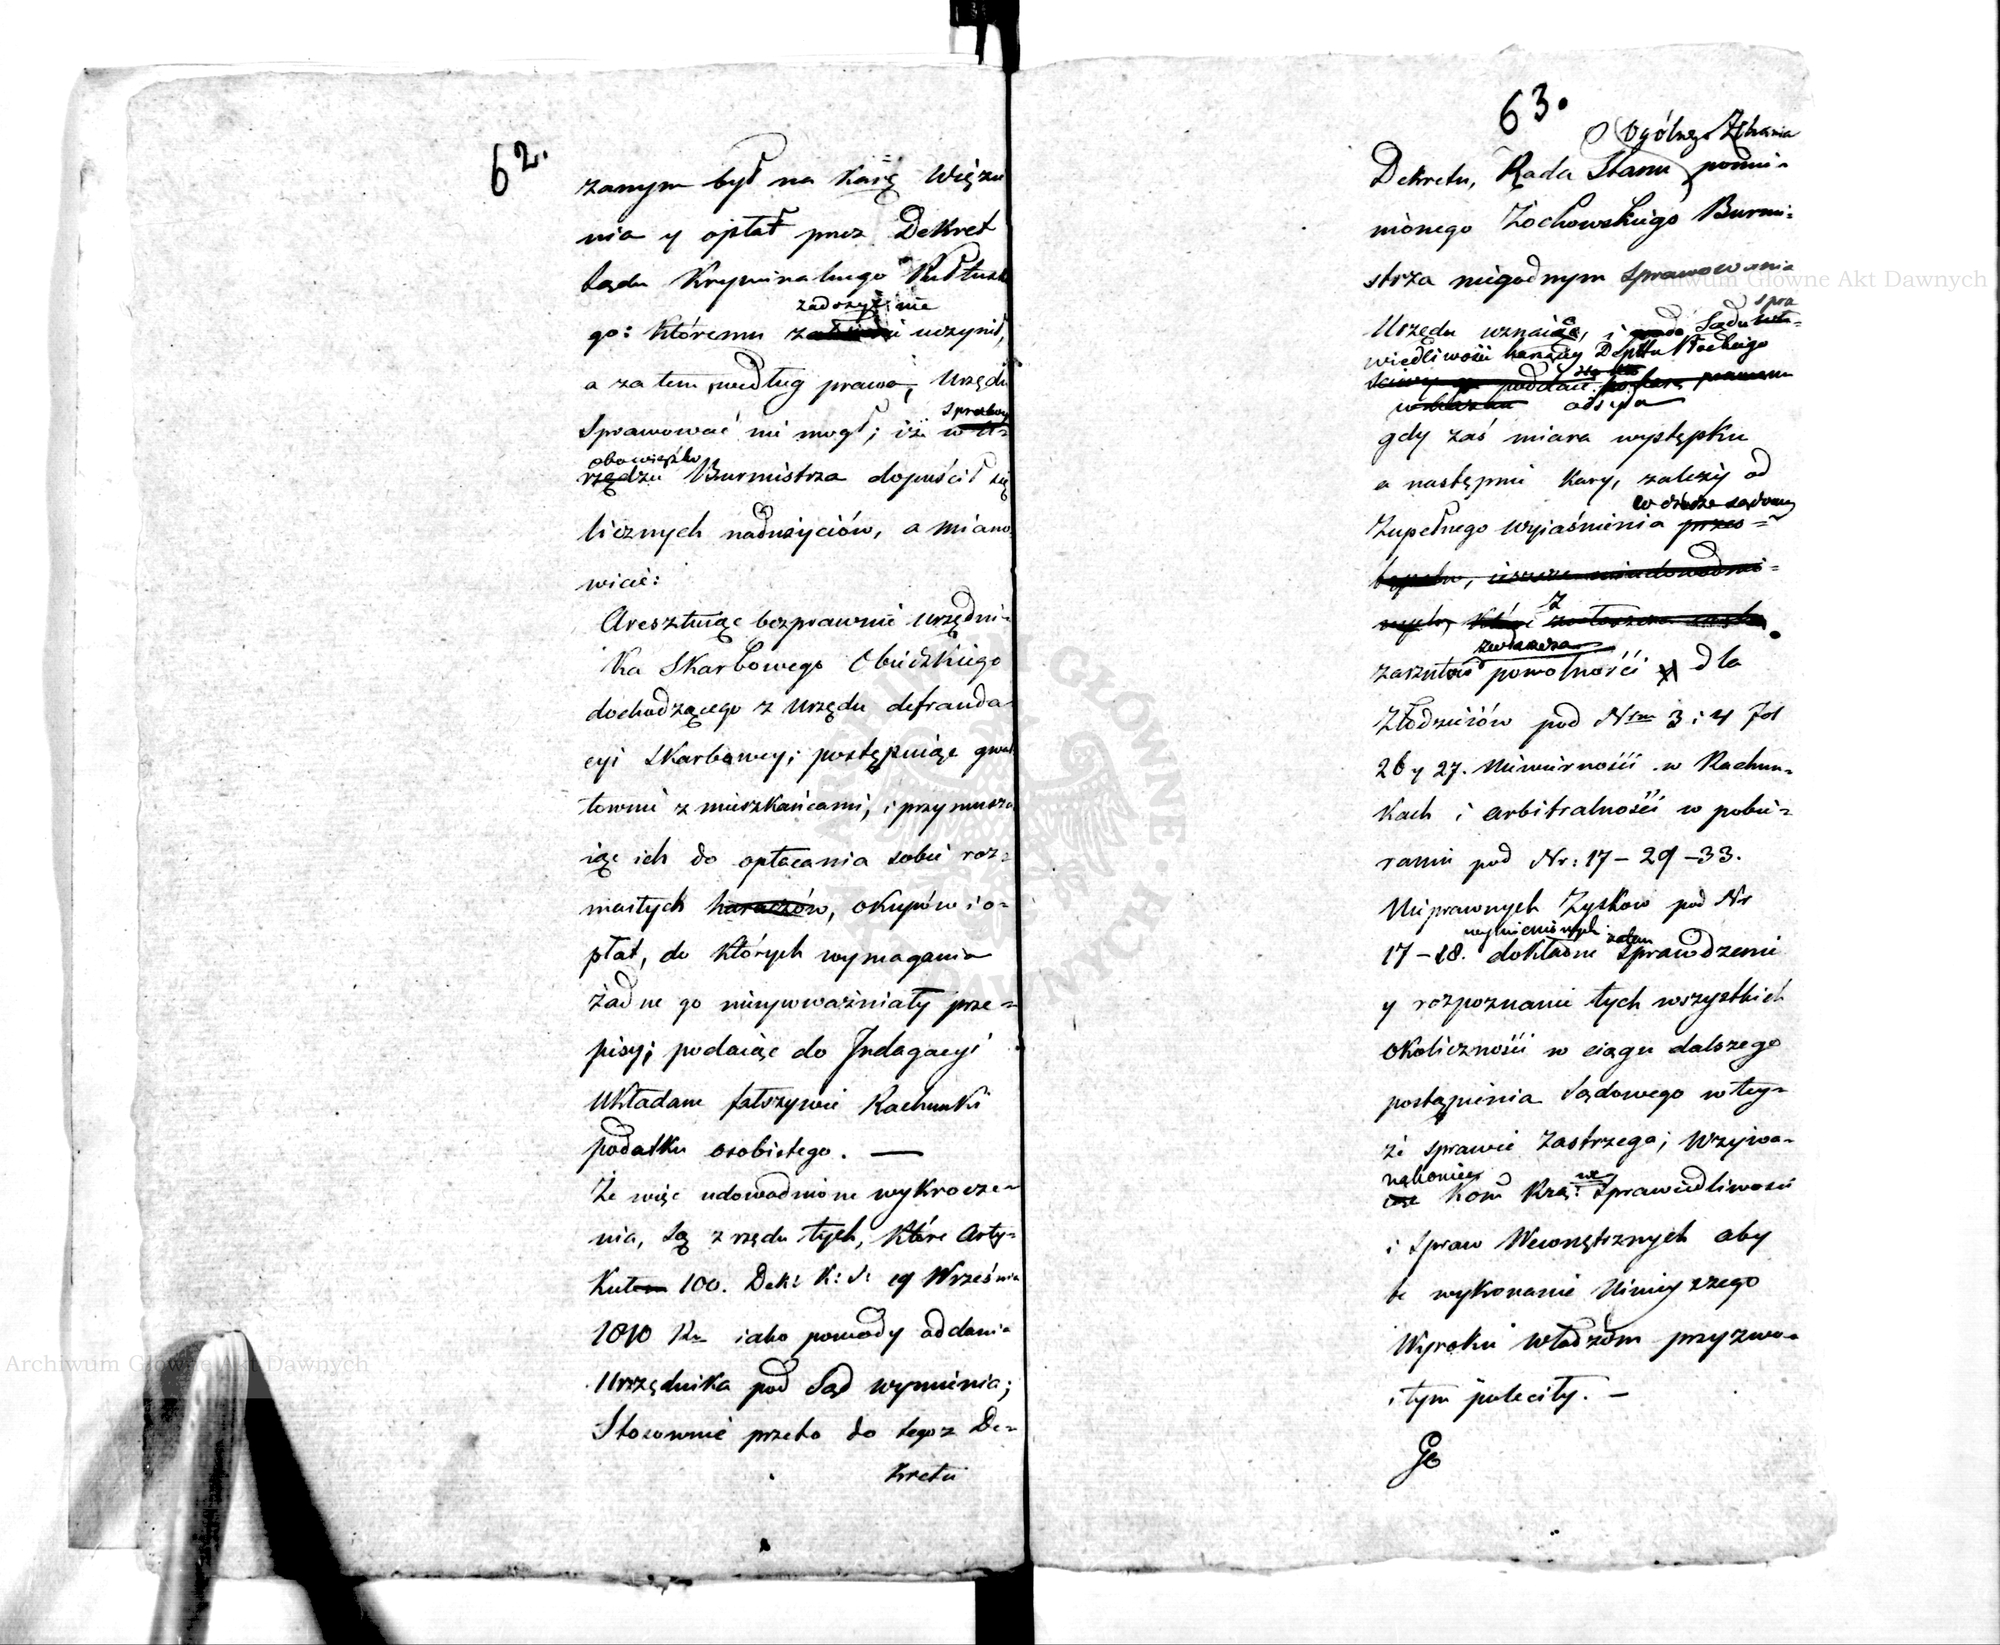 62.
zanym był na karę Więzie
nia y opłat przez Dekret
Sądu Kryminalnego Pułtusk
zadosyć nie
go: któremu uczynił,
a za tem według prawa, Urzędu
sprawować nie mogł; iż w U=
sprawow
obowiązku
rzędzie Burmistrza dopuścił się
licznych nadużyciów, a miano
wicie:
Aresztuiąc bezprawnie urzędni=
ka Skarbowego Obiedzkiego
dochodzącego z Urzędu defrauda=
cyi Skarbowey; postępuiąc gwał
townie z mieszkańcami, i przymusza
iąc ich do opłacania sobie roz=
maitych haraczów, okupów i o=
płat, do których wymagania
żadne go nieupoważniały prze=
pisy; podaiąc do Indagacyi
układane fałszywie Rachunki
podatku osobistego. —
Że więc udowodnione wykrocze=
nia, są z rzędu tych, które Arty=
kuł 100. Dek: K: S: 19 Września
1810 Ru iako powody oddania
Urzędnika pod Sąd wymienia;
Stosownie przeto do tegoż De=
kretu
63.
Ogólnego Zebrania
Dekretu, Rada Stanu pomie=
nionego Żochowskiego Burmi=
strza niegodnym sprawowania
Urzędu uznaiąc, i Sądu
spra
wiedliwości karzącey Depttu Płockiego
poddaie
odsyła
gdy zaś miara występku
a następnie kary, zależy od
w drodze sądowey
Zupełnego wyiaśnienia przes=
z
zwłaszcza
zarzutów powolności dla
Złodzieiów pod Nrm 3 i 4 Fol
26 y 27. Niewierności w Rachun=
kach i arbitralności w pobie=
raniu pod Nr: 17 – 29 – 33.
Nieprawnych Zysków pod Nr
wymienionych zatem
17 – 18. dokładne sprawdzenie
y rozpoznanie tych wszystkich
okoliczności w ciągu dalszego
postąpienia Sądowego w tey=
że sprawie zastrzega; Wzywa=
nakoniec
Kom Rzą: we Sprawiedliwości
i Spraw Wewnętrznych aby
te wykonanie Ninieyszego
Wyroku władzom przyzwo=
itym poleciły. —
Archiwum Główne Akt Dawnych
Archiwum Główne Akt Dawnych